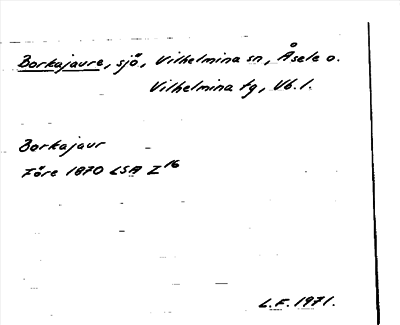 Borkajaure, sjö, Vilhelmina sn, Åsele o.
Vilhelmina tg, Vb. l.
Borkajaur
Före 1870 LSA Z 16
L.F. 1971.